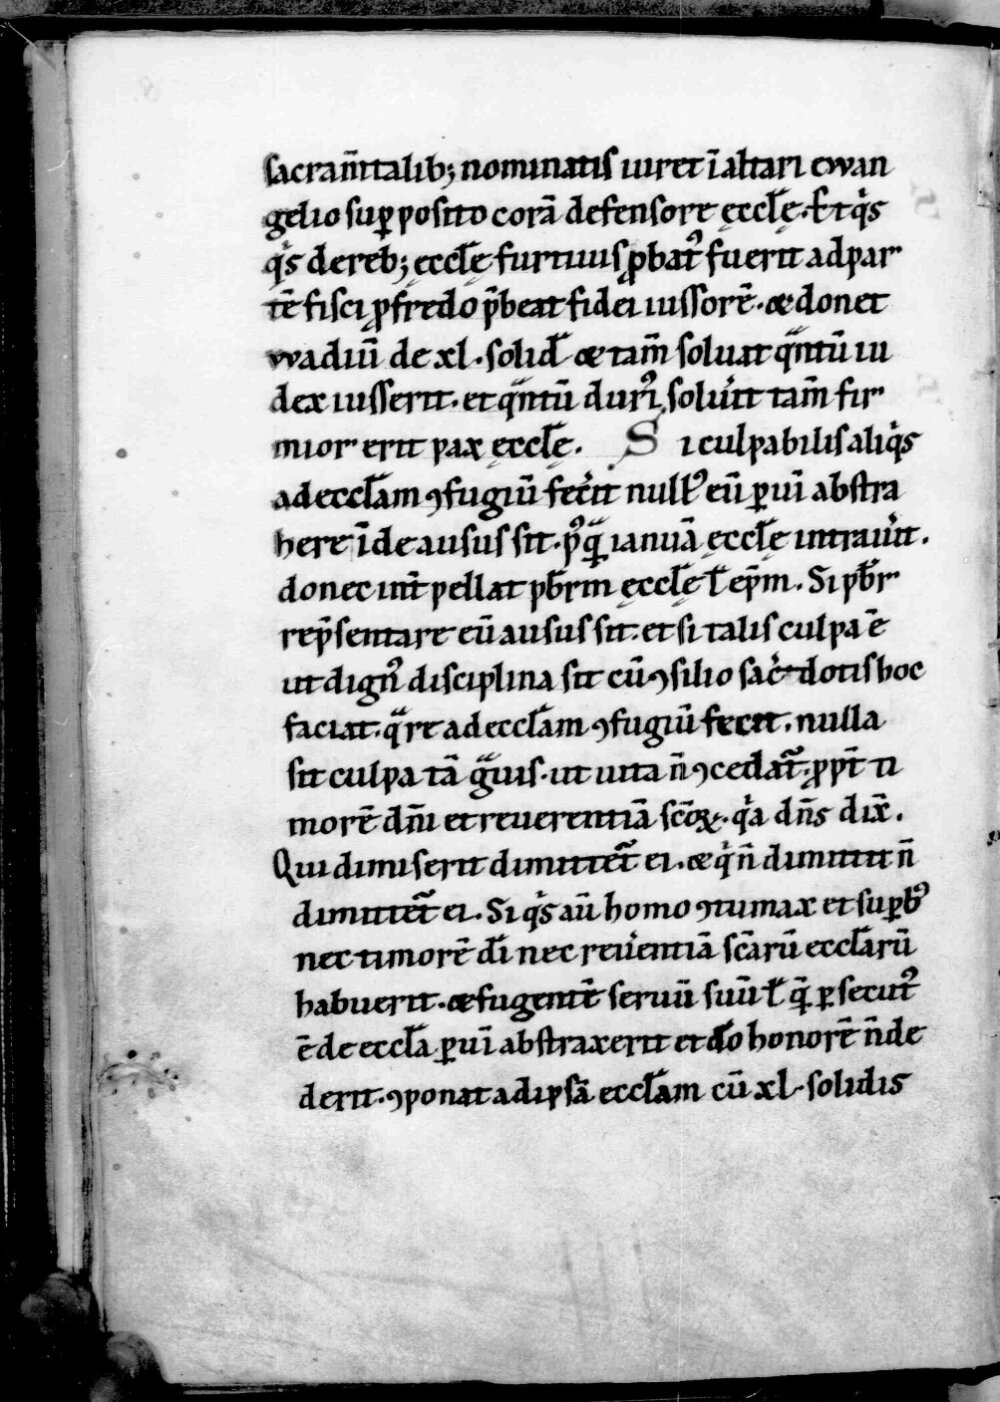 sacram̄talib; nominatis iuret ī altari ewan
gelio suꝑ posito corā defensore ęccl̄ę. Et qͥs
qͥs de reb; ęccl̄ę furtiuus ꝓbatꝰ fuerit ad par
tē fisci ꝓ fredo p̄beat fidei iussorē. & donet
wadiū de xl. solid̄ & tam̄ soluat qᷓntū iu
dex iusserit. et qᷓntū durꝰ, soluͥit tam̄ fir
mior erit pax ęccl̄ę. Si culpabilis aliqͥs
ad eccl̄am ꝯfugiū fecͥit nullꝰ eū ꝑ uim̄ abstra
here īde ausus sit. pꝰqᷓ ianuā ęccl̄ę intrauͥit.
donec int̄pellat pb̄rm ęccl̄ę ł ep̄m. Si pb̄r
rep̄sentare eū ausus sit. et si talis culpa ē
ut dignꝰ disciplina sit cū ꝯsilio sacͥdotis hoc
faciat. qᷓre ad eccl̄am ꝯfugiū fecit. nulla
sit culpa tā gᷓuis. ut uita n̄ ꝯcedat᷑. ꝓpt̄ ti
morē dn̄i et reuerentiā sc̄oꝝ. qͥa dn̄s dix̄.
Qui dimiserit dimittet᷑ ei. & qͥ n̄ dimittit n̄
dimittet᷑ ei. Si qͥs aū homo ꝯtumax et suꝑbꝰ
nec timorē dī nec reuͥentiā sc̄arū eccl̄arū
habuerit. & fugentē seruū suū ł q̄ ꝑsecutꝰ
ē de eccl̄a ꝑ uī abstraxerit et do honorē n̄ de
derit. ꝯponat ad ipsā eccl̄am cū xl. solidis